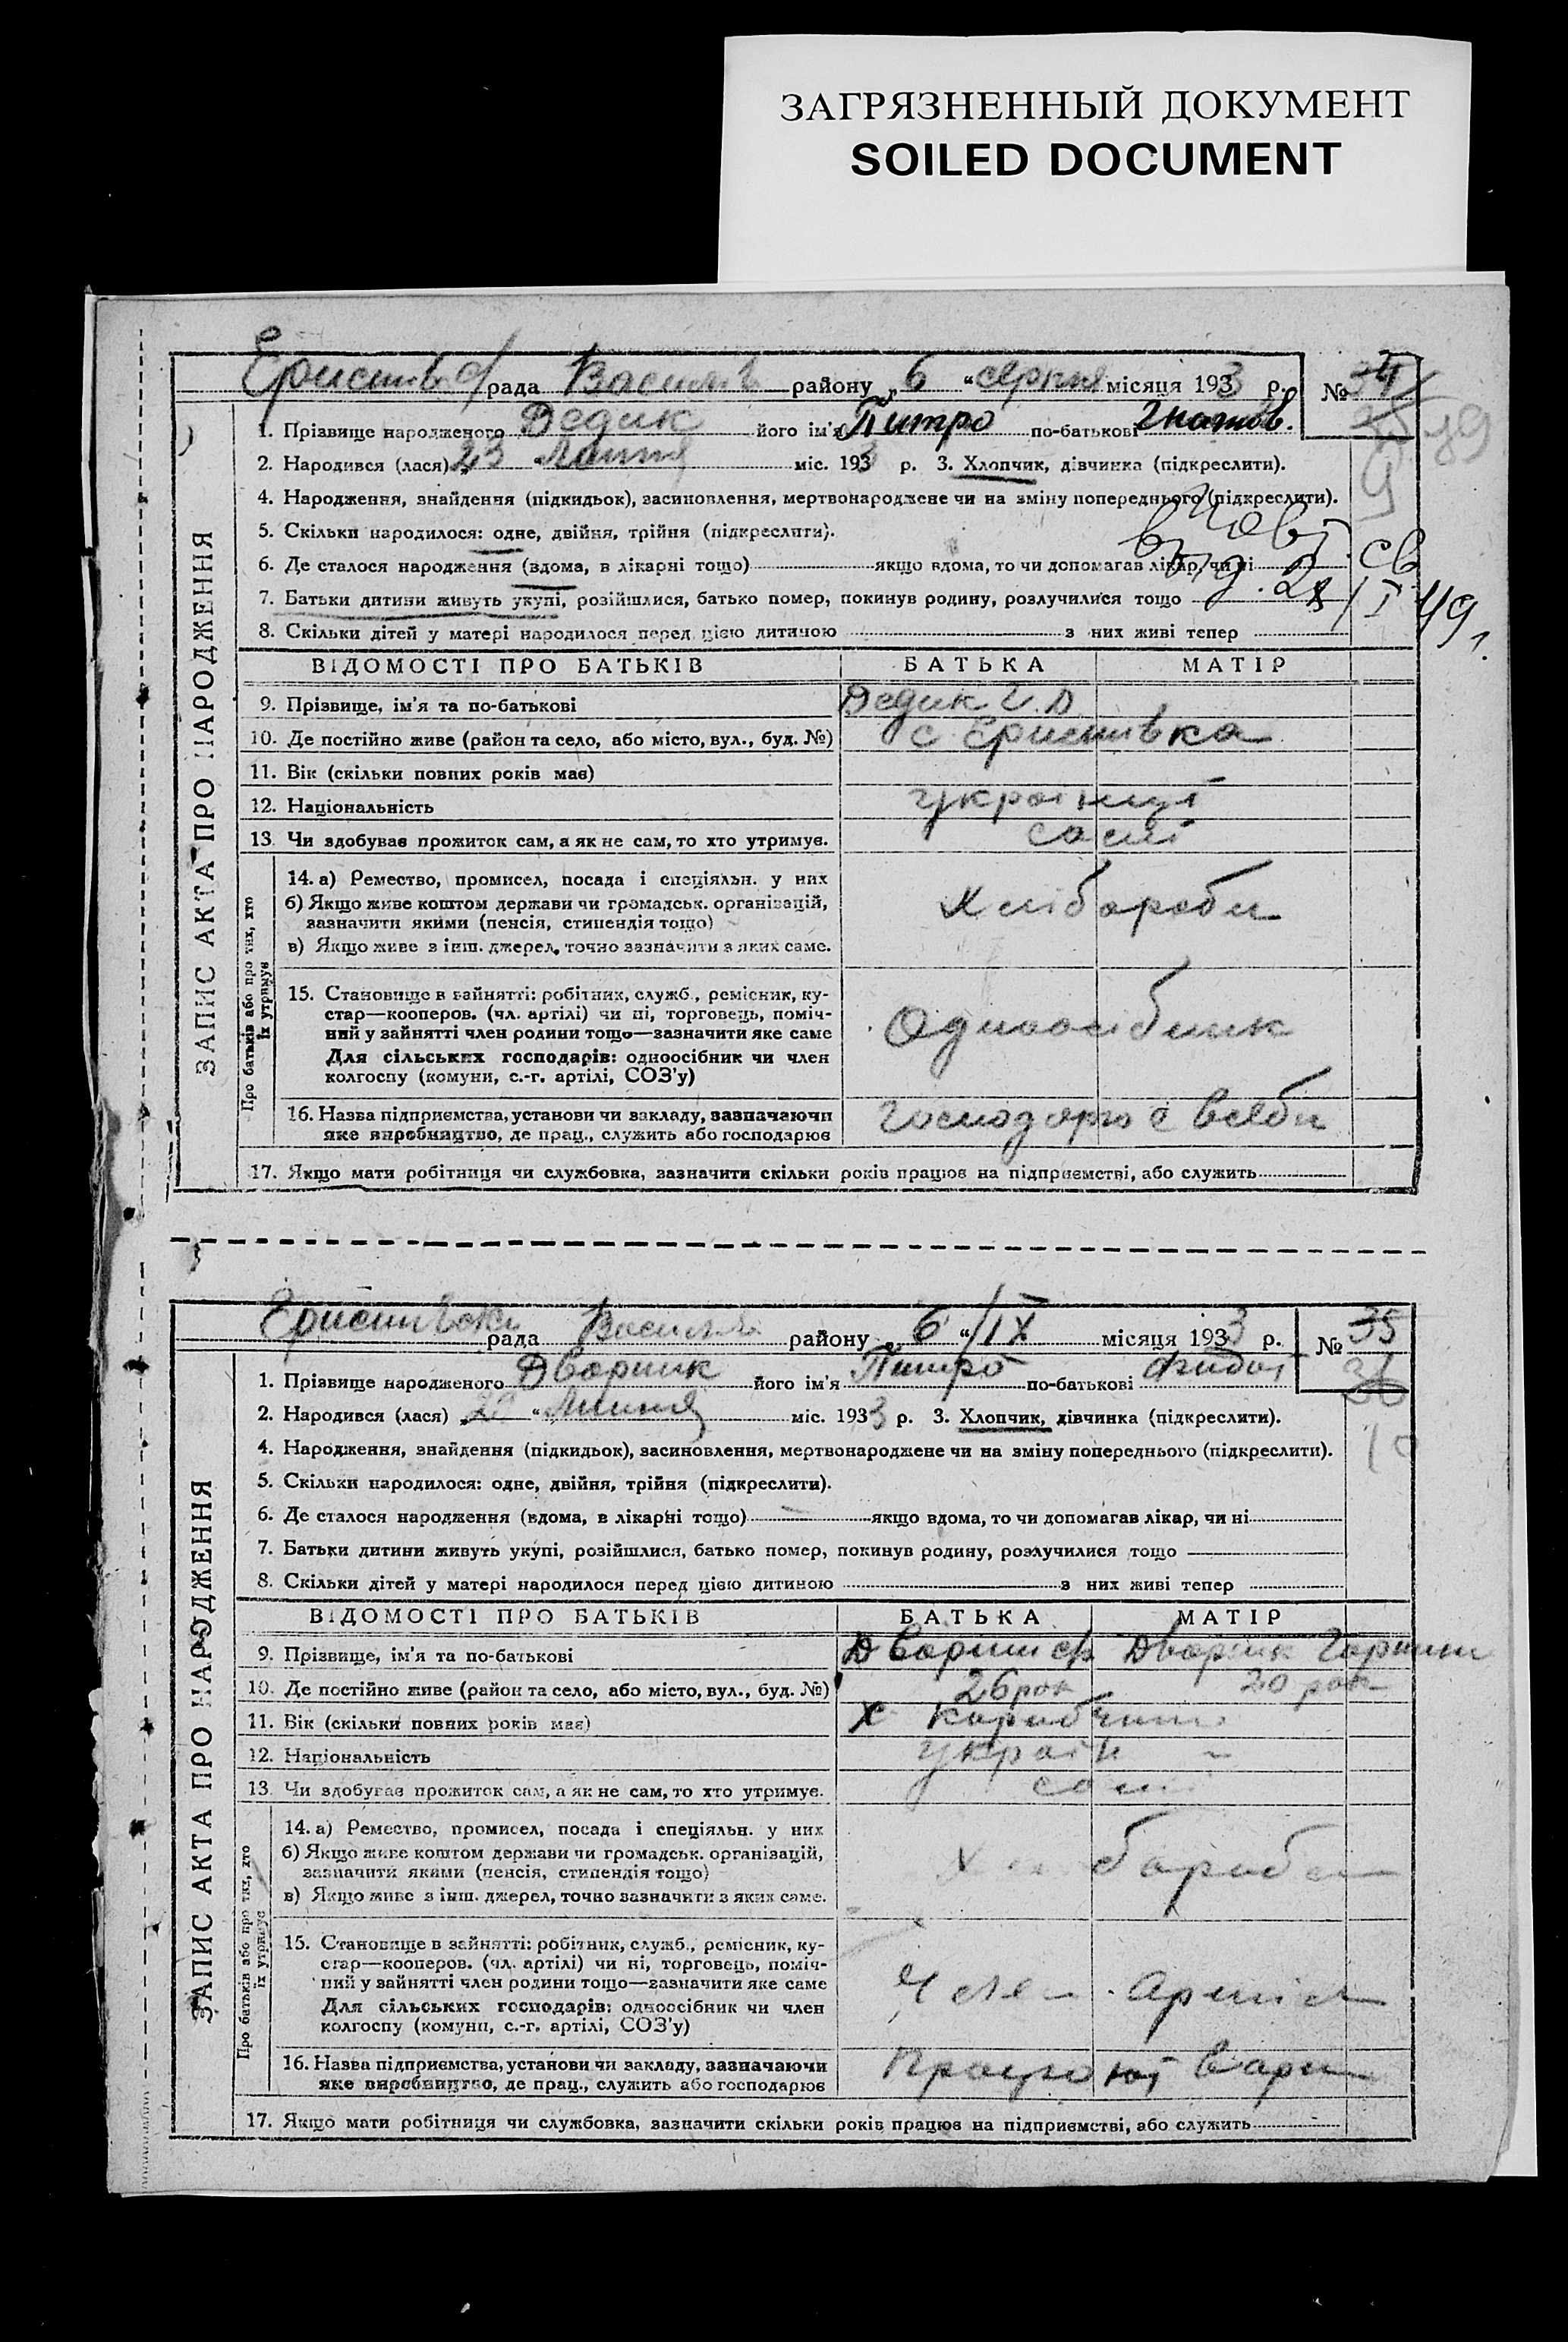 ЗАГРЯЗНЕННЫЙ ДОКУМЕНТ
SOILED DOCUMENT
рада Василів району „6 “ серпня місяця 1933 р. № 34
1. Прізвище народженого Дедик його ім'я Питро по-батькові Гнатов.
2. Народився (лася) „23 Липня міс. 1933 р. 3. Хлопчик, дівчинка (підкреслити).
4. Народження, знайдення (підкидьок), засиновлення, мертвонароджене чи на зміну попереднього (підкреслити).
5. Скільки народилося: одне, двійня, трійня (підкреслити).
6. Де сталося народження (вдома, в лікарні тощо) якщо вдома, то чи допомагав лікар, чи ні
7. Батьки дитини живуть укупі, розійшлися, батько помер, покинув родину, розлучилися тощо
8. Скільки дітей у матері народилося перед цією дитиною з них живі тепер
ВІДОМОСТІ ПРО БАТЬКІВ БАТЬКА МАТІР
9. Прізвище, ім'я та по-батькові Дедик Г. Д
10. Де постійно живе (район та село, або місто, вул., буд. №) с Еристівка
11. Вік (скільки повних років має)
12. Національність українці
13. Чи здобував прожиток сам, а як не сам, то хто утримує. самі
ЗАПИС АКТА ПРО НАРОДЖЕННЯ
Про батьків або про тих, хто їх утримує
14. а) Ремество, промисел, посада і спеціяльн. у них
б) Якщо живе коштом держави чи громадськ. організацій,
зазначити якими (пенсія, стипендія тощо)
в) Якщо живе з інш. джерел, точно зазначити з яких саме.
Хлібороби
15. Становище в зайнятті: робітник, служб., ремісник, ку-
стар—кооперов. (чл. артілі) чи ні, торговець, поміч-
ний у зайнятті член родини тощо—зазначити яке саме
Для сільських господарів: одноосібник чи член
колгоспу (комуни, с.-г. артілі, СОЗ'у)
Одноосібник
16. Назва підприємства, установи чи закладу, зазначаючи
яке виробництво, де прац., служить або господарює
17. Якщо мати робітниця чи службовка, зазначити скільки років працює на підприємстві, або служить
рада Василів району „6 “ /ІХ місяця 1933 р. № 35
1. Прізвище народженого Дворник його ім'я Питро по-батькові
2. Народився (лася) „ “ Липня міс. 1933 р. 3. Хлопчик, дівчинка (підкреслити).
4. Народження, знайдення (підкидьок), засиновлення, мертвонароджене чи на зміну попереднього (підкреслити).
5. Скільки народилося: одне, двійня, трійня (підкреслити).
6. Де сталося народження (вдома, в лікарні тощо) якщо вдома, то чи допомагав лікар, чи ні
7. Батьки дитини живуть укупі, розійшлися, батько помер, покинув родину, розлучилися тощо
8. Скільки дітей у матері народилося перед цією дитиною з них живі тепер
ВІДОМОСТІ ПРО БАТЬКІВ БАТЬКА МАТІР
9. Прізвище, ім'я та по-батькові Дворник
10. Де постійно живе (район та село, або місто, вул., буд. №) 26 рок 20 рок
11. Вік (скільки повних років має)
12. Національність україн
13. Чи здобував прожиток сам, а як не сам, то хто утримує. самі
ЗАПИС АКТА ПРО НАРОДЖЕННЯ
Про батьків або про тих, хто їх утримує
14. а) Ремество, промисел, посада і спеціяльн. у них
б) Якщо живе коштом держави чи громадськ. організацій,
зазначити якими (пенсія, стипендія тощо)
в) Якщо живе з інш. джерел, точно зазначити з яких саме.
15. Становище в зайнятті: робітник, служб., ремісник, ку-
стар—кооперов. (чл. артілі) чи ні, торговець, поміч-
ний у зайнятті член родини тощо—зазначити яке саме
Для сільських господарів: одноосібник чи член
колгоспу (комуни, с.-г. артілі, СОЗ'у)
16. Назва підприємства, установи чи закладу, зазначаючи
яке виробництво, де прац., служить або господарює
17. Якщо мати робітниця чи службовка, зазначити скільки років працює на підприємстві, або служить